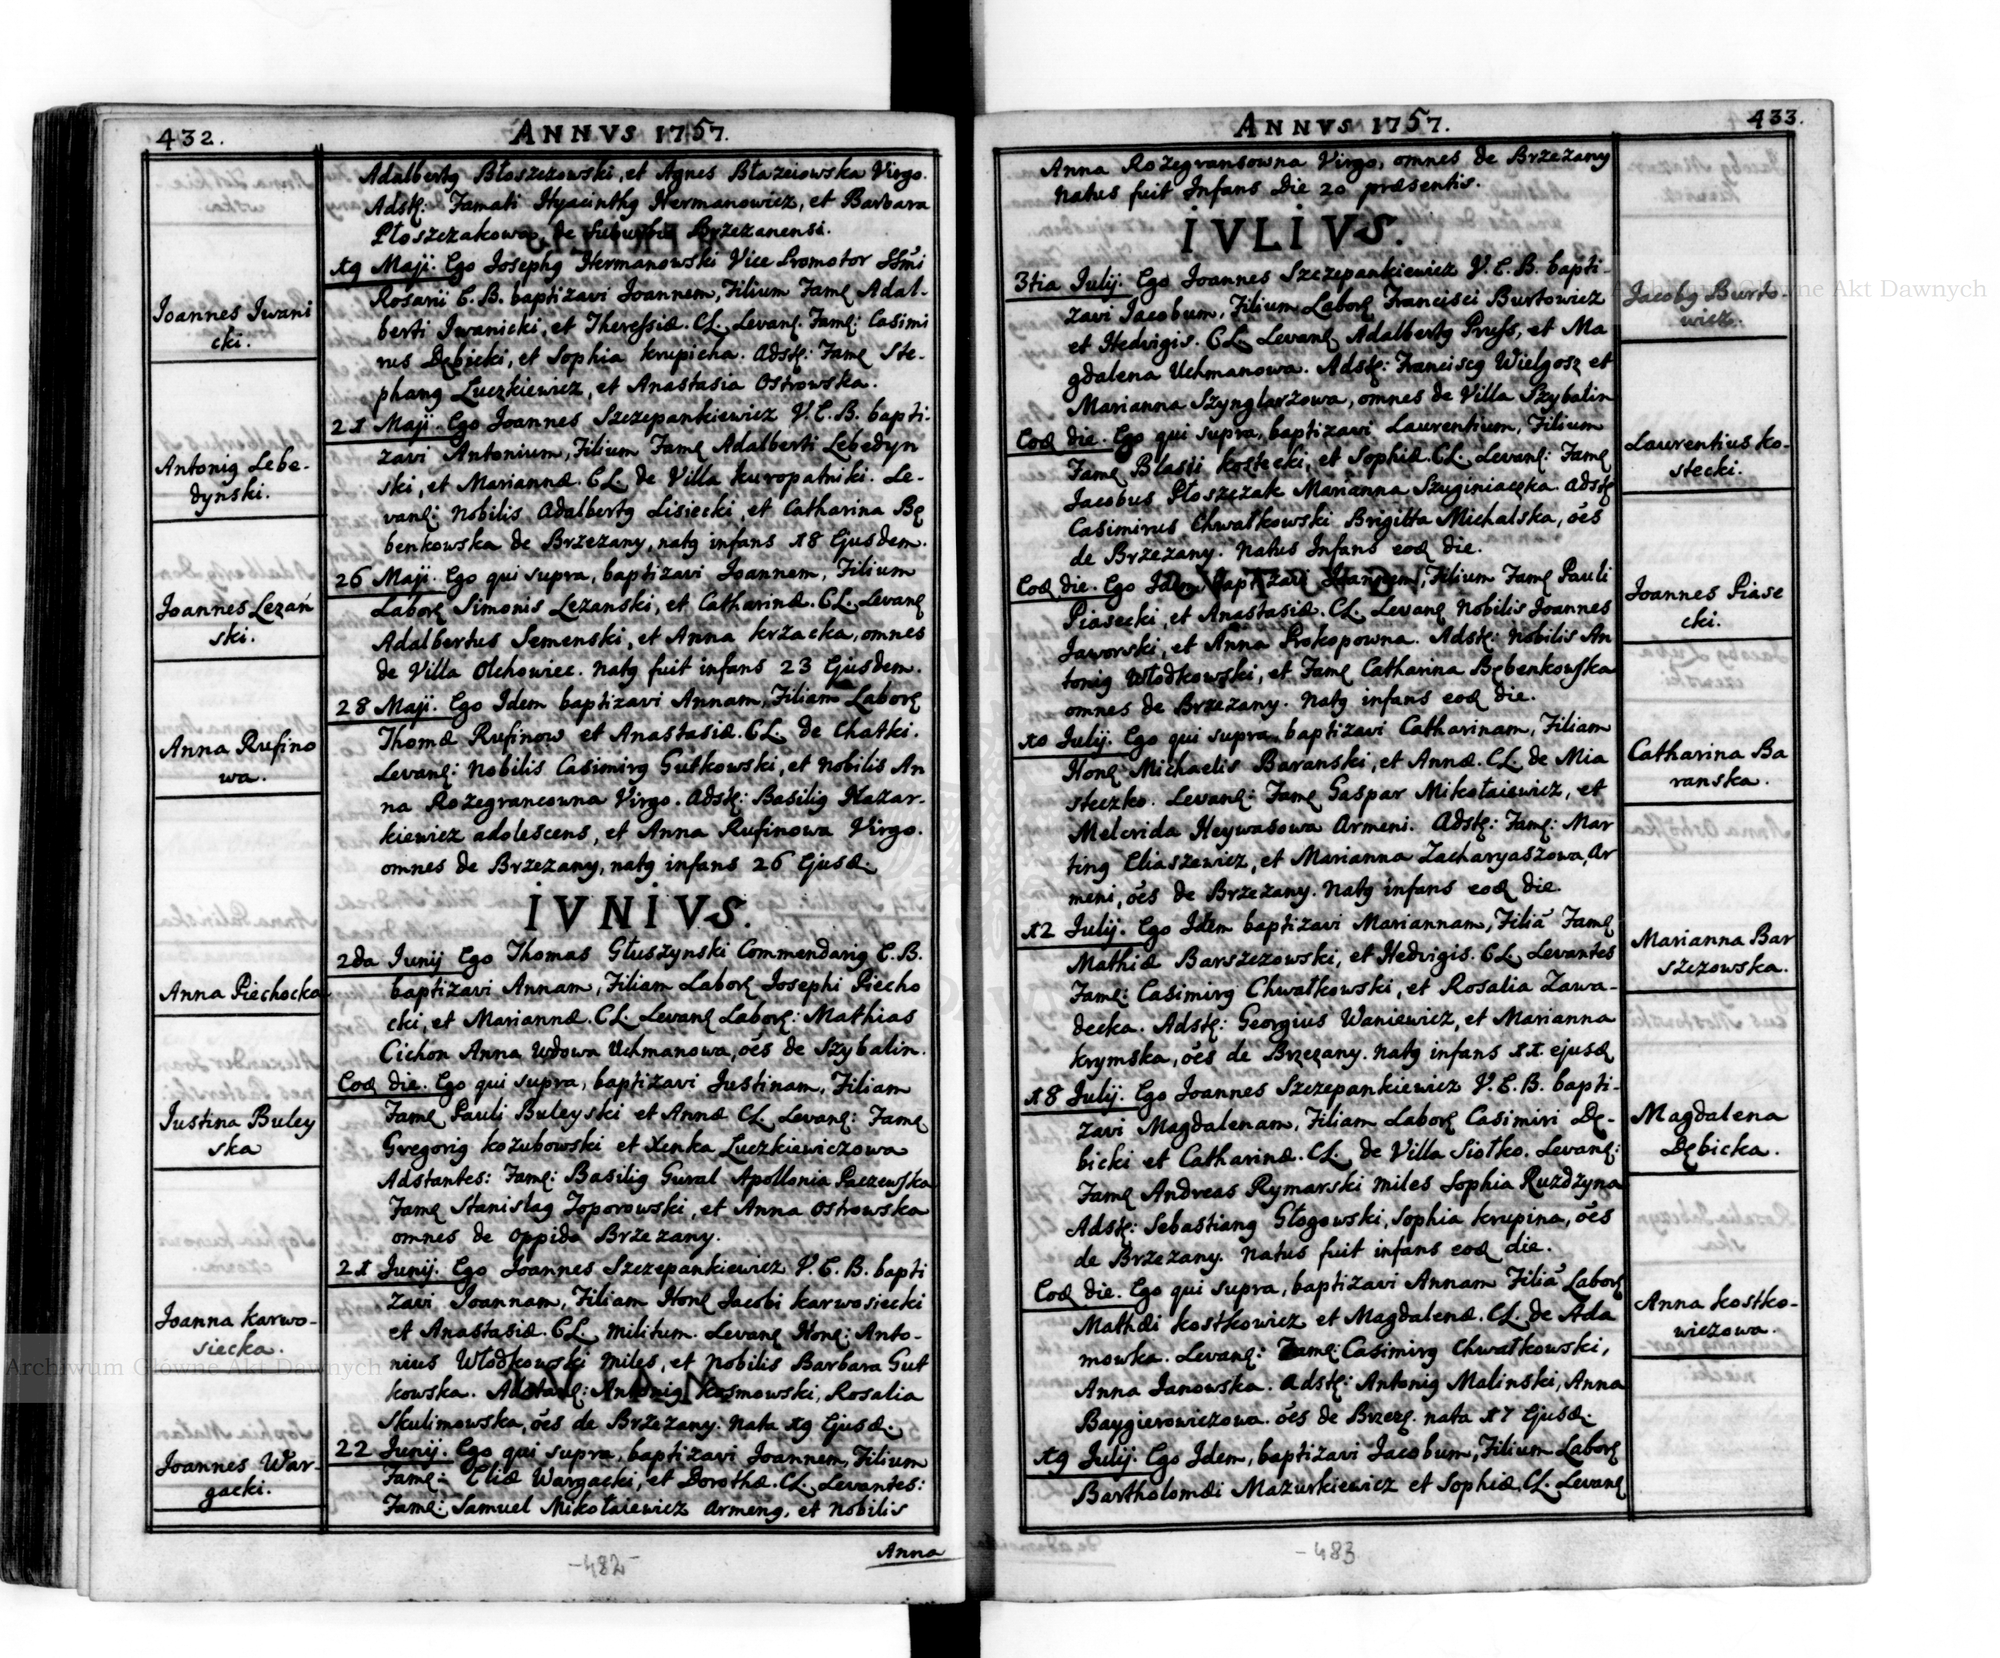 432.
ANNVS 1757.
Adalbertg Błoszczowski, et Agnes Błazeiowska Virgo.
Adstę: Famati Hyacinthg Hermanowicz, et Barbara
Płoszczakowa, de Suburbio Brzezanensi.
19 Maji. Ego Josephg Hermanowski Vice Promotor SSmi
Rosarii E. B. baptizavi Joannem, Filium Famę Adal-
berti Jwanicki, et Theressiæ. CL. Levanę. Famę: Casimi
rus Dębicki, et Sophia Krupicha. Adstę: Famę Ste-
phang Luczkiewicz, et Anastasia Ostrowska.
Joannes Jwani
cki.
21 Maji. Ego Joannes Szczepankiewicz V. E. B. bapti-
zavi Antonium, Filium Famę Adalberti Lebedyn
ski, et Mariannæ. CL. de Villa Kuropatniki. Le-
vanę: Nobilis Adalbertg Lisiecki, et Catharina Bę
benkowska de Brzezany, natg infans 18 Ejusdem.
Antonig Lebe-
dynski.
26 Maji. Ego qui supra, baptizavi Joannem, Filium
Laborę Simonis Lezanski, et Catharinæ. CL. Levanę
Adalbertus Semenski, et Anna Krzacka, omnes
de Villa Olchowiec. Natg fuit infans 23 Ejusdem.
Joannes Lezań
ski.
28 Maji. Ego Idem baptizavi Annam, Filiam Laborę
Thomæ Rufinow et Anastasiæ. CL. de Chatki.
Levanę: Nobilis Casimirg Gutkowski, et Nobilis An
na Rozegrancowna Virgo. Adstę: Basilig Nazar-
kiewicz adolescens, et Anna Rufinowa Virgo.
omnes de Brzezany, natg infans 26 Ejusd.
Anna Rufino
wa.
IVNIVS.
2da Junij Ego Thomas Głuszynski Commendarig E. B.
baptizavi Annam, Filiam Laborę Josephi Piecho
cki, et Mariannæ. CL. Levanę Laborę: Mathias
Cichon Anna Wdowa Uchmanowa, oẽs de Szybalin.
Anna Piechocka
Eod die. Ego qui supra, baptizavi Justinam, Filiam
Famę Pauli Buleyski et Annæ CL. Levanę: Famę
Gregorig Kozubowski et Xenka Luczkiewiczowa
Adstantes: Famę: Basilig Gural Apollonia Paczewska
Famę Stanislag Toporowski, et Anna Ostrowska
omnes de Oppido Brzezany.
Justina Buley
ska
21 Junij. Ego Joannes Szczepankiewicz V. E. B. bapti
zavi Joannam, Filiam Honę Jacobi Karwosiecki
et Anastasiæ. CL. Militum. Levanę Honę: Anto-
nius Włodkowski Miles, et Nobilis Barbara Gut
kowska. Adstanę: Antonig Kosmowski, Rosalia
Skulimowska, oẽs de Brzezany. Nata 19 Ejusd.
Joanna Karwo-
siecka.
22 Junij. Ego qui supra, baptizavi Joannem, Filium
Famę: Eliæ Wargacki, et Dorothæ. CL. Levantes:
Famę: Samuel Mikołaiewicz Armeng, et Nobilis
Joannes War-
gacki.
Anna
-482-
433.
ANNVS 1757.
Anna Rozegransowna Virgo, omnes de Brzezany
Natus fuit Infans Die 20 præsentis.
IVLIVS.
3tia Julij. Ego Joannes Szczepankiewicz V. E. B. bapti-
zavi Jacobum, Filium Laborę Francisci Burtowicz
et Hedvigis. CL. Levanę Adalbertg Pruss, et Ma
gdalena Uchmanowa. Adstę: Franciscg Wielgosz et
Marianna Szynglarzowa, omnes de Villa Szybalin
Jacobg Burto-
wicz.
Eod die. Ego qui supra, baptizavi Laurentium, Filium
Famę Blasii Kostecki, et Sophiæ. CL. Levanę: Famę
Jacobus Płoszczak Marianna Szuginiacka. Adstę
Casimirus Chwałkowski Brigitta Michalska, oẽs
de Brzezany. Natus Infans eod die.
Laurentius Ko-
stecki.
Eod die. Ego Idem baptizavi Joannem, Filium Famę Pauli
Piasecki, et Anastasiæ. CL. Levanę Nobilis Joannes
Jaworski, et Anna Prokopowna. Adstę: Nobilis An
tonig Włodkowski, et Famę Catharina Bębenkowska
omnes de Brzezany. Natg infans eod die.
Joannes Piase
cki.
10 Julij. Ego qui supra baptizavi Catharinam, Filiam
Honę Michaelis Baranski, et Annæ. CL. de Mia
steczko. Levanę: Famę Gaspar Mikołaiewicz, et
Melcrida Heywasowa Armeni. Adstę: Famę: Mar
ting Eliaszewicz, et Marianna Zacharyaszowa, Ar
meni, oẽs de Brzezany. Natg infans eod die.
Catharina Ba
ranska.
12 Julij. Ego Idem baptizavi Mariannam, Filiã Famę
Mathiæ Barszczowski, et Hedvigis. CL. Levantes
Famę: Casimirg Chwałkowski, et Rosalia Zawa-
decka. Adstę: Georgius Waniewicz, et Marianna
Krymska, oẽs de Brzezany. Natg infans 11 ejusd
Marianna Bar
szczowska.
18 Julij. Ego Joannes Szczepankiewicz V. E. B. bapti-
zavi Magdalenam, Filiam Laborę Casimiri Dę-
bicki et Catharinæ. CL. de Villa Siołko. Levanę:
Famę Andreas Rymarski Miles Sophia Ruzdzyna
Adstę: Sebastiang Głogowski, Sophia Krupina, oẽs
de Brzezany. Natus fuit infans eod die.
Magdalena
Dębicka.
Eod die. Ego qui supra, baptizavi Annam Filiã Laborę
Mathæi Kostkowicz et Magdalenæ. CL. de Ada
mowka. Levanę: Famę: Casimirg Chwałkowski,
Anna Janowska. Adstę: Antonig Malinski, Anna
Baygierowiczowa. oẽs de Brzezę. nata 17 Ejusd.
Anna Kostko-
wiczowa.
19 Julij. Ego Idem, baptizavi Jacobum, Filium Laborę
Bartholomæi Mazurkiewicz et Sophiæ. CL. Levanę
-483
Archiwum Główne Akt Dawnych
Archiwum Główne Akt Dawnych